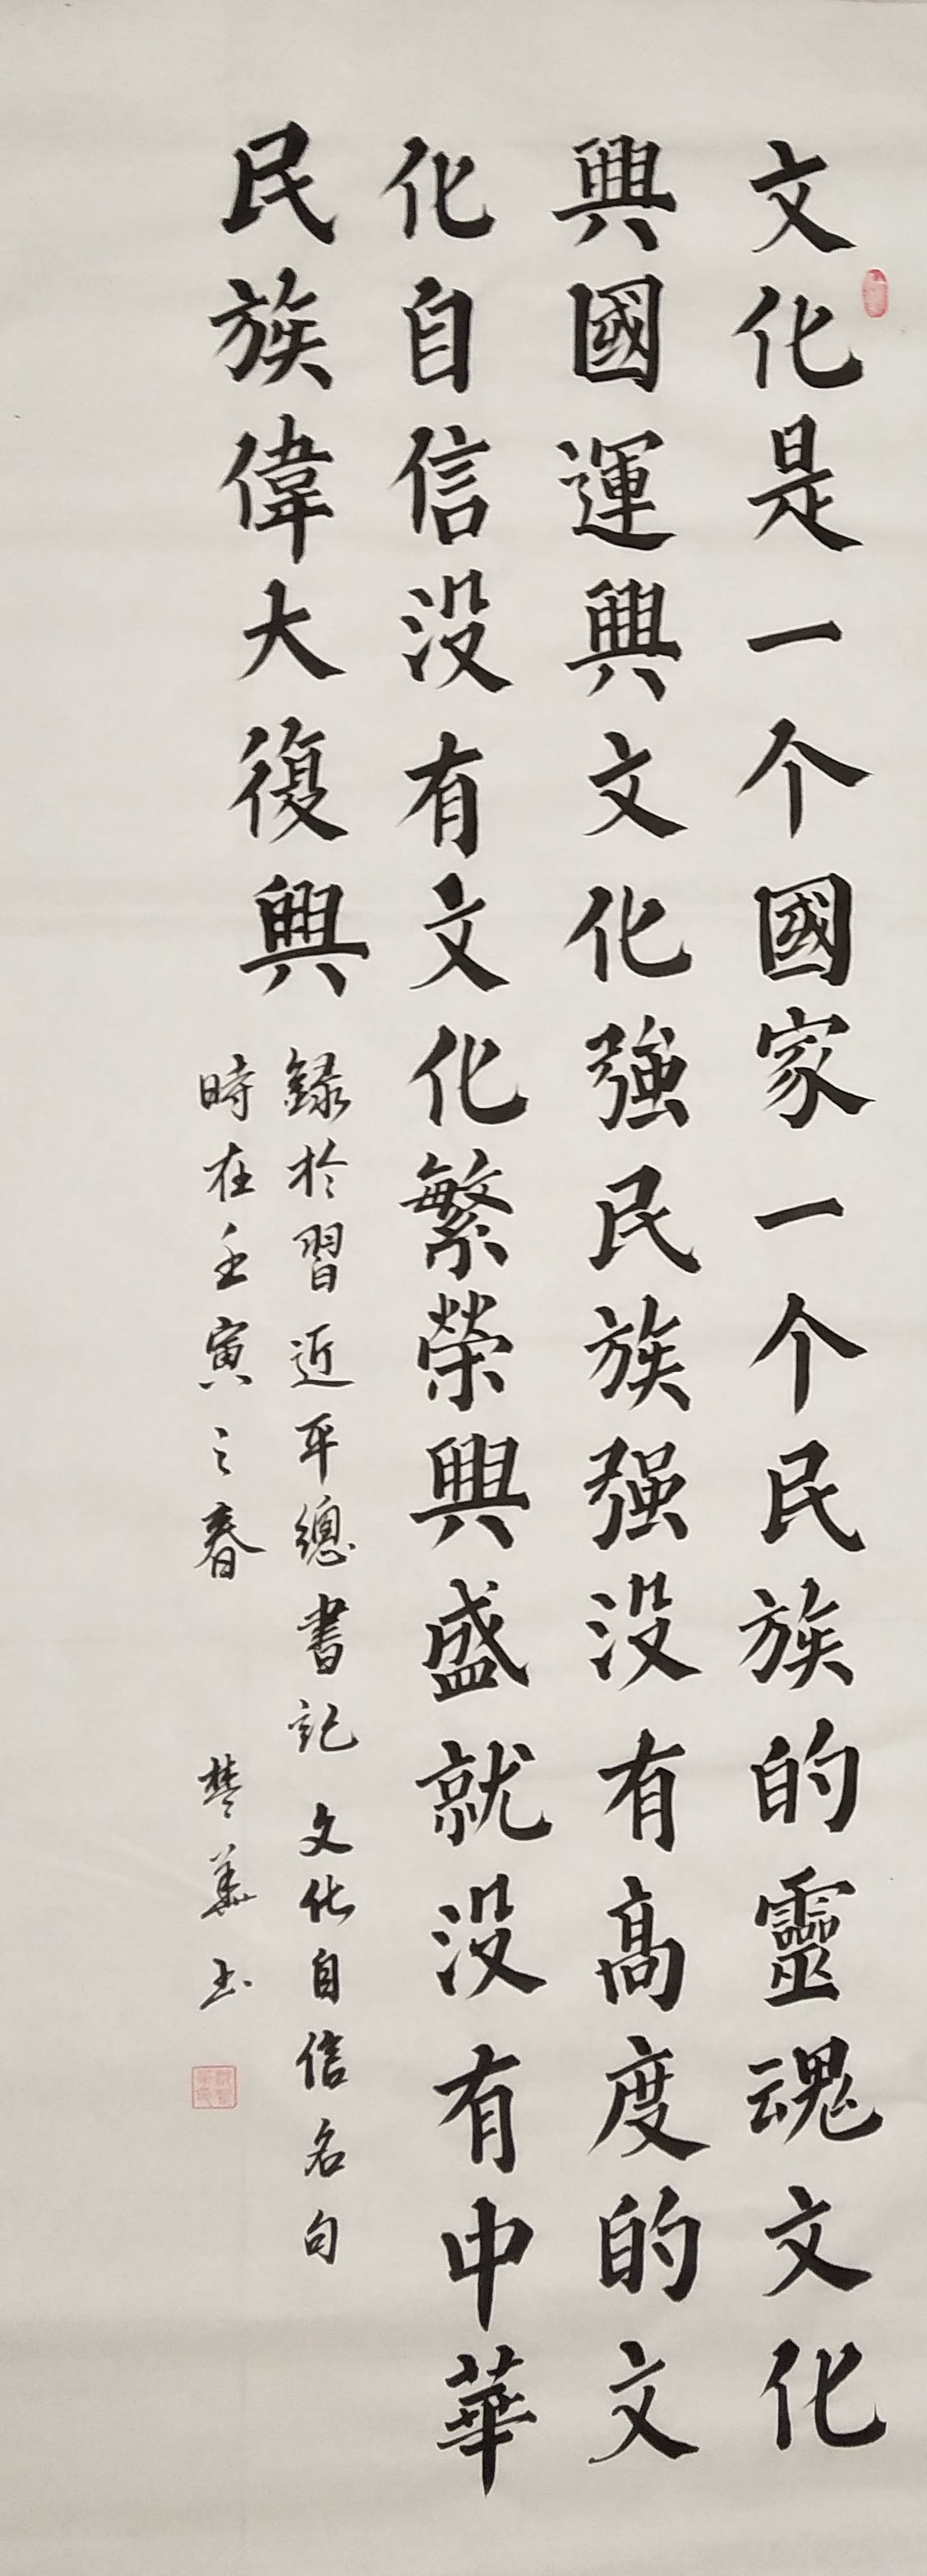 文化是一个國家一个民族的靈魂文化
興國運興文化強民族强没有高度的文
化自信没有文化繁榮興盛就没有中華
民族偉大復興
録於習近平總書記文化自信名句
時在壬寅之春